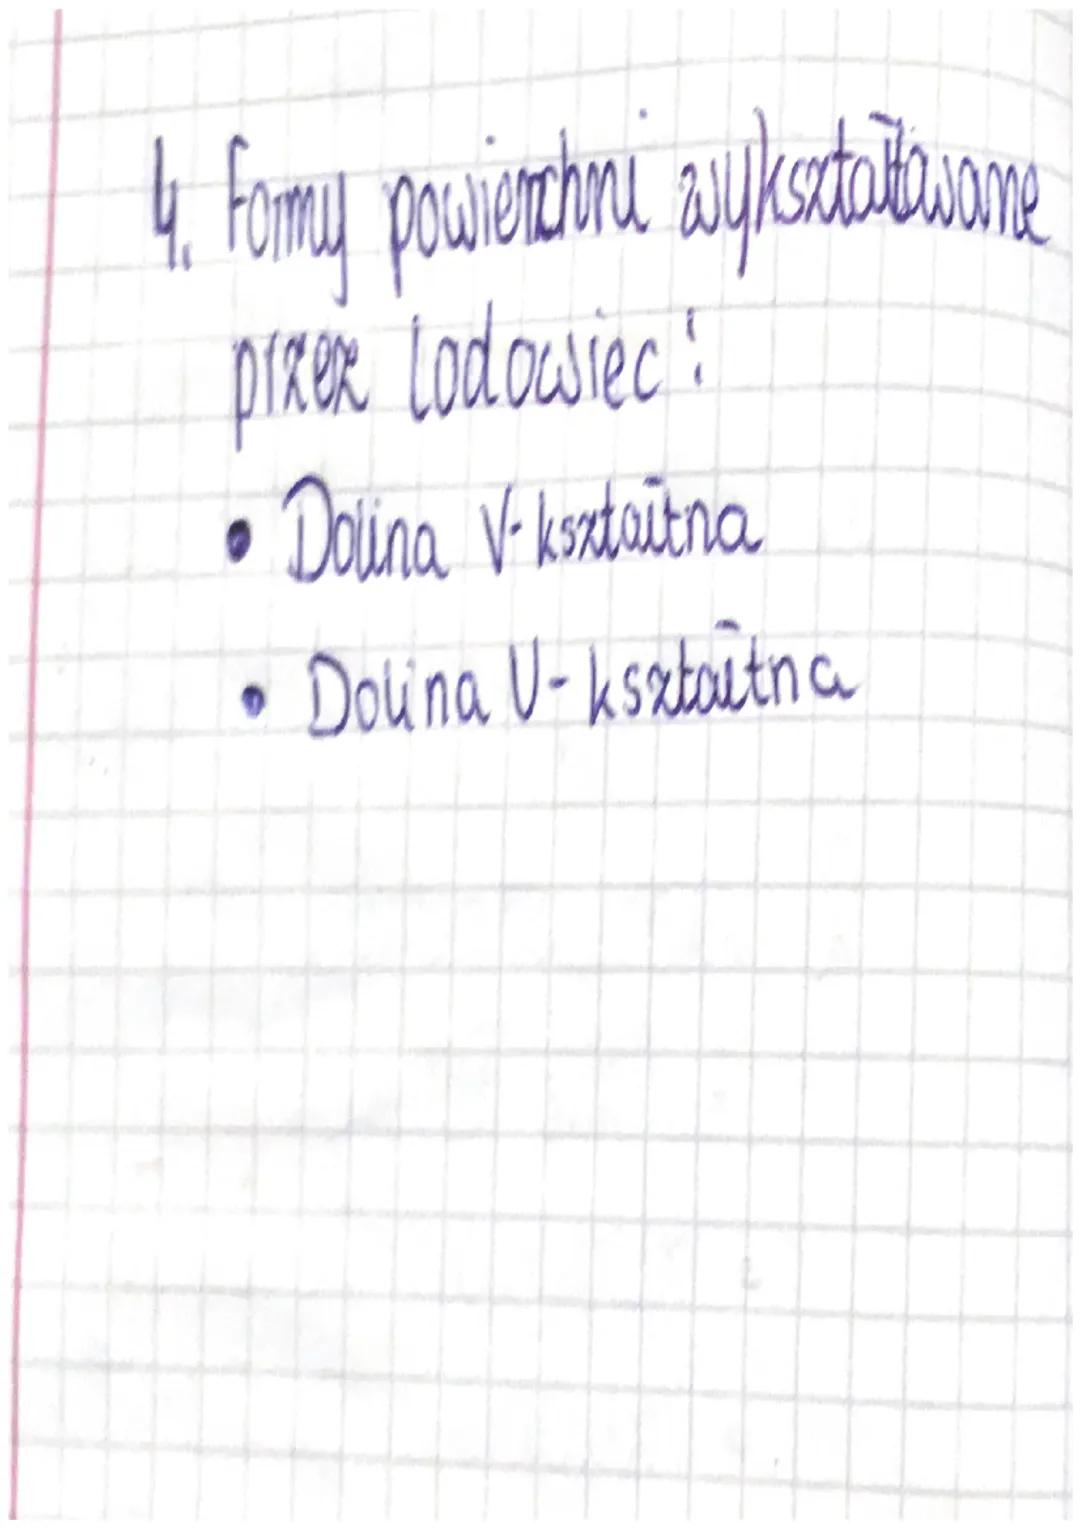 4. Formy powierzchni wykształtawane
przez lodowiec:
• Dolina V-kształtna
• Dolina U-kształtna